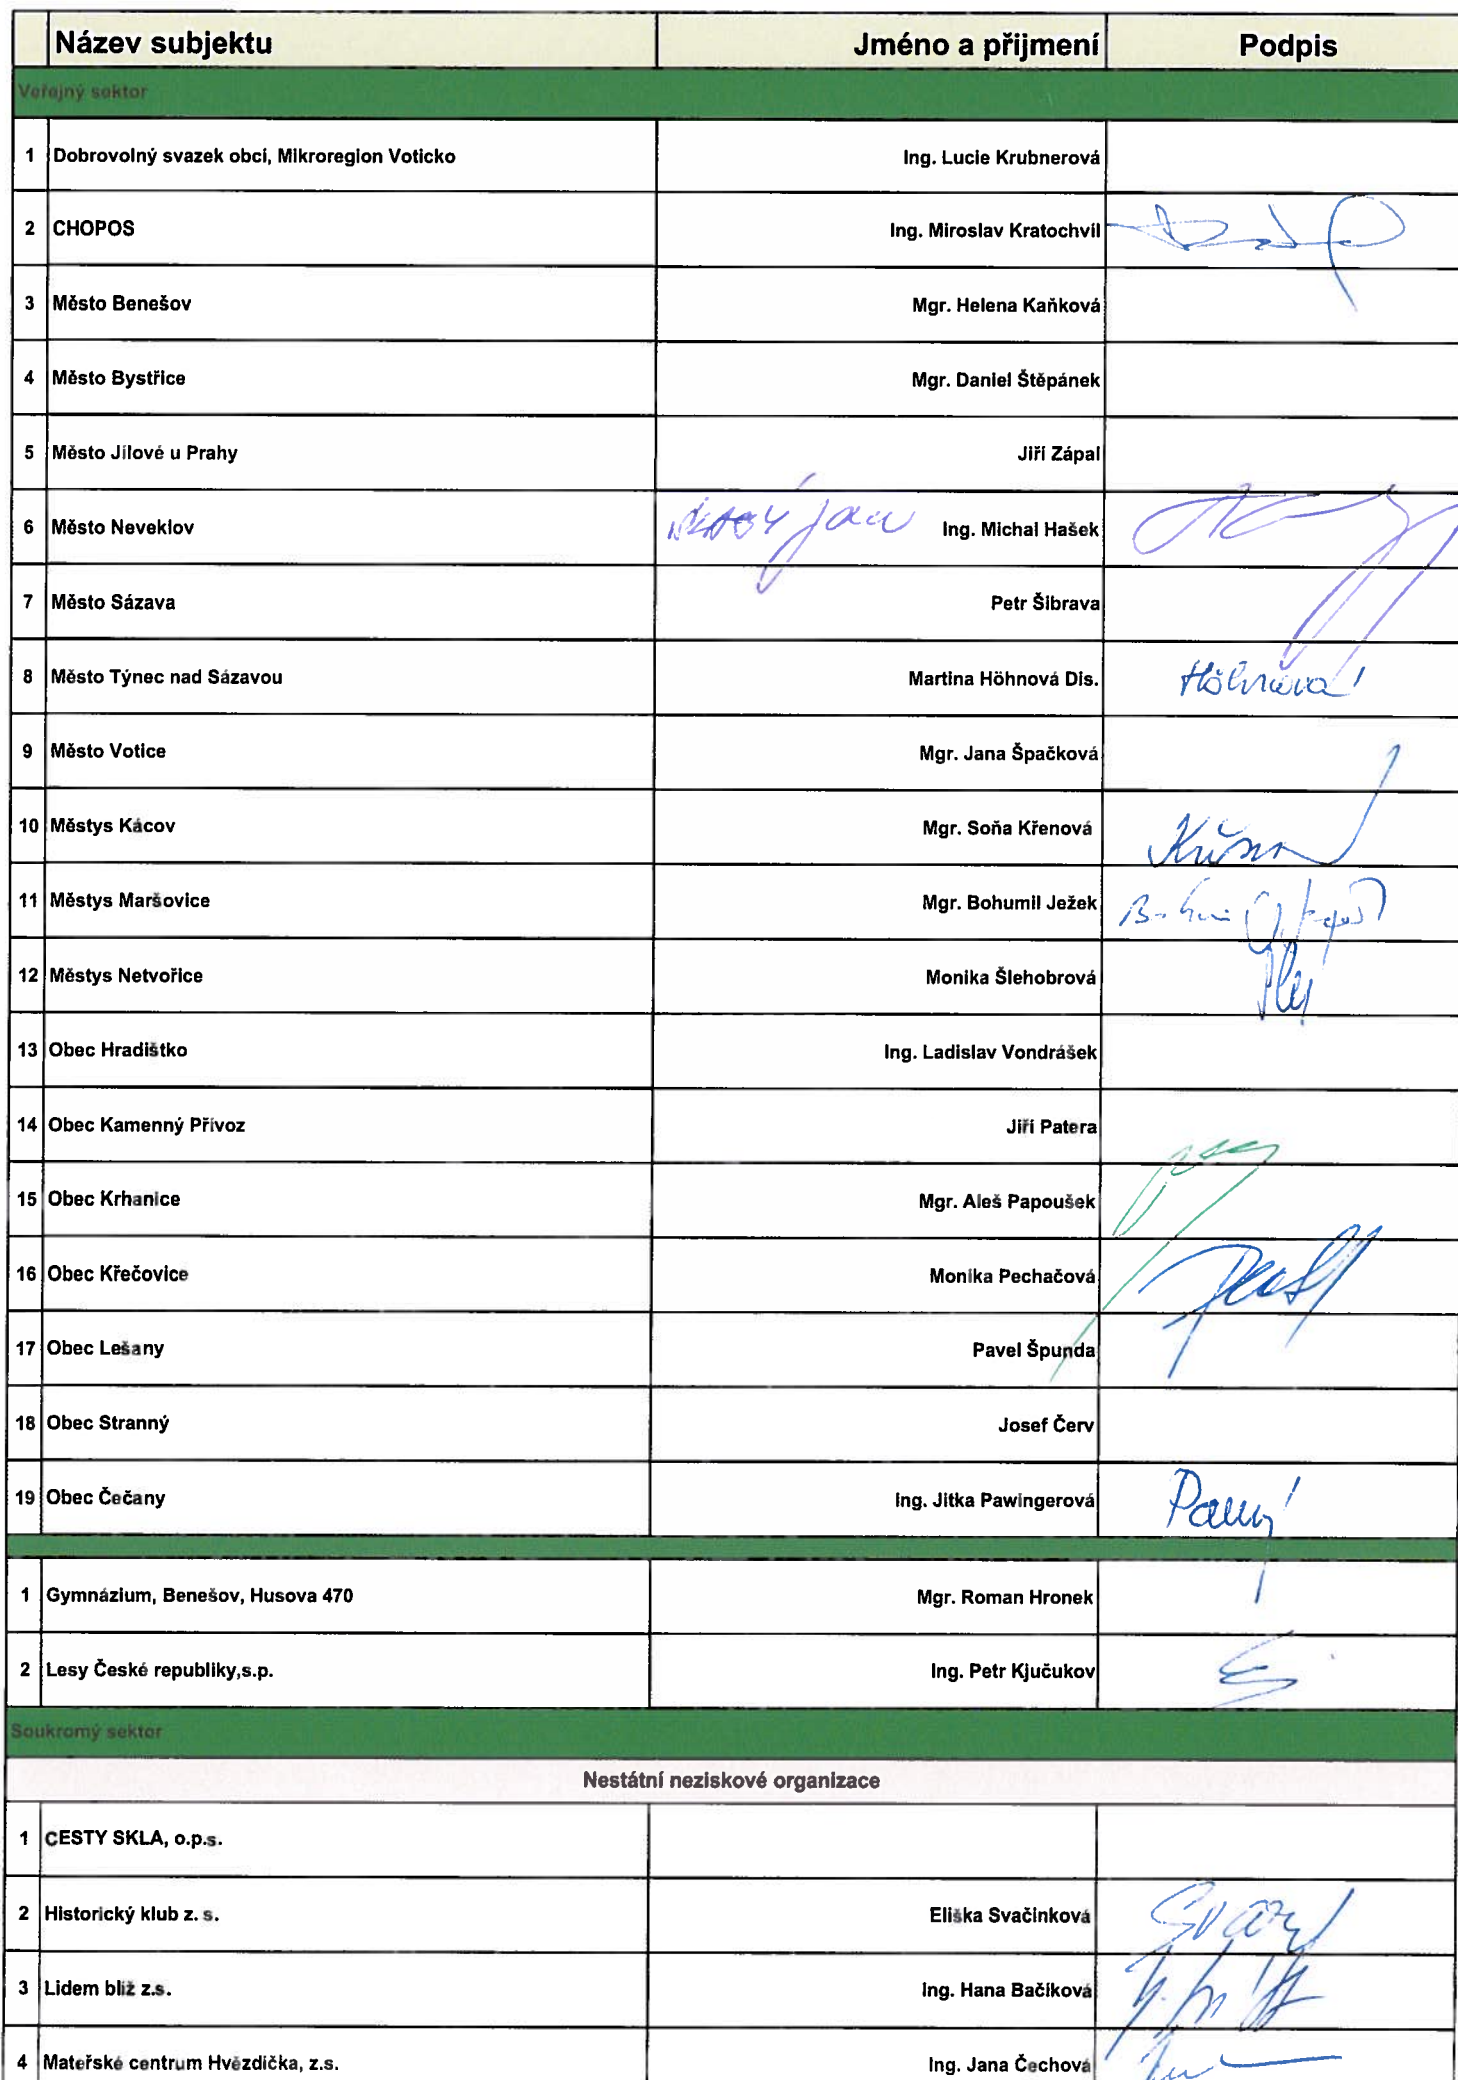 Název subjektu Jméno a přijmení Podpis
Veřejný sektor
1 Dobrovolný svazek obcí, Mikroregion Voticko Ing. Lucie Krubnerová
2 CHOPOS Ing. Miroslav Kratochvíl
3 Město Benešov Mgr. Helena Kaňková
4 Město Bystřice Mgr. Daniel Štěpánek
5 Město Jílové u Prahy Jiří Zápal
6 Město Neveklov Jan Ing. Michal Hašek
7 Město Sázava Petr Šibrava
8 Město Týnec nad Sázavou Martina Höhnová Dis. Höhnová
9 Město Votice Mgr. Jana Špačková
10 Městys Kácov Mgr. Soňa Křenová
11 Městys Maršovice Mgr. Bohumil Ježek
12 Městys Netvořice Monika Šlehobrová
13 Obec Hradištko Ing. Ladislav Vondrášek
14 Obec Kamenný Přívoz Jiří Patera
15 Obec Krhanice Mgr. Aleš Papoušek
16 Obec Křečovice Monika Pechačová
17 Obec Lešany Pavel Špunda
18 Obec Stranný Josef Červ
19 Obec Čečany Ing. Jitka Pawingerová
1 Gymnázium, Benešov, Husova 470 Mgr. Roman Hronek
2 Lesy České republiky,s.p. Ing. Petr Kjučukov
Soukromý sektor
Nestátní neziskové organizace
1 CESTY SKLA, o.p.s.
2 Historický klub z. s. Eliška Svačinková
3 Lidem blíž z.s. Ing. Hana Bačíková
4 Mateřské centrum Hvězdička, z.s. Ing. Jana Čechová